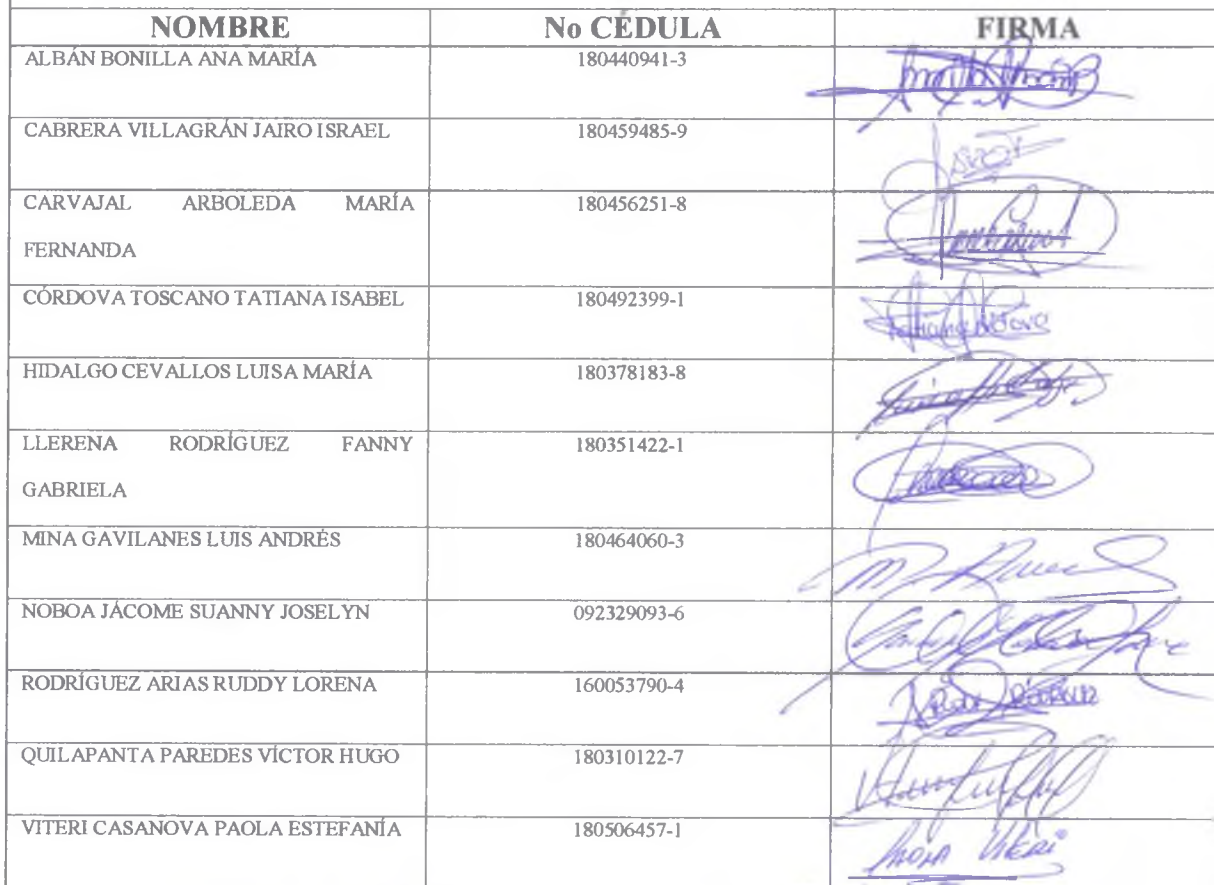 NOMBRE No CÉDULA FIRMA
ALBÁN BONILLA ANA MARÍA 180440941-3
CABRERA VILLAGRÁN JAIRO ISRAEL 180459485-9
CARVAJAL ARBOLEDA MARÍA 180456251-8
FERNANDA
CÓRDOVA TOSCANO TATIANA ISABEL 180492399-1
HIDALGO CEVALLOS LUISA MARÍA 180378183-8
LLERENA RODRÍGUEZ FANNY 180351422-1
GABRIELA
MINA GAVILANES LUIS ANDRÉS 180464060-3
NOBOA JÁCOME SUANNY JOSELYN 092329093-6
RODRÍGUEZ ARIAS RUDDY LORENA 160053790-4
QUILAPANTA PAREDES VÍCTOR HUGO 180310122-7
VITERI CASANOVA PAOLA ESTEFANÍA 180506457-1 PAOLA VITERI